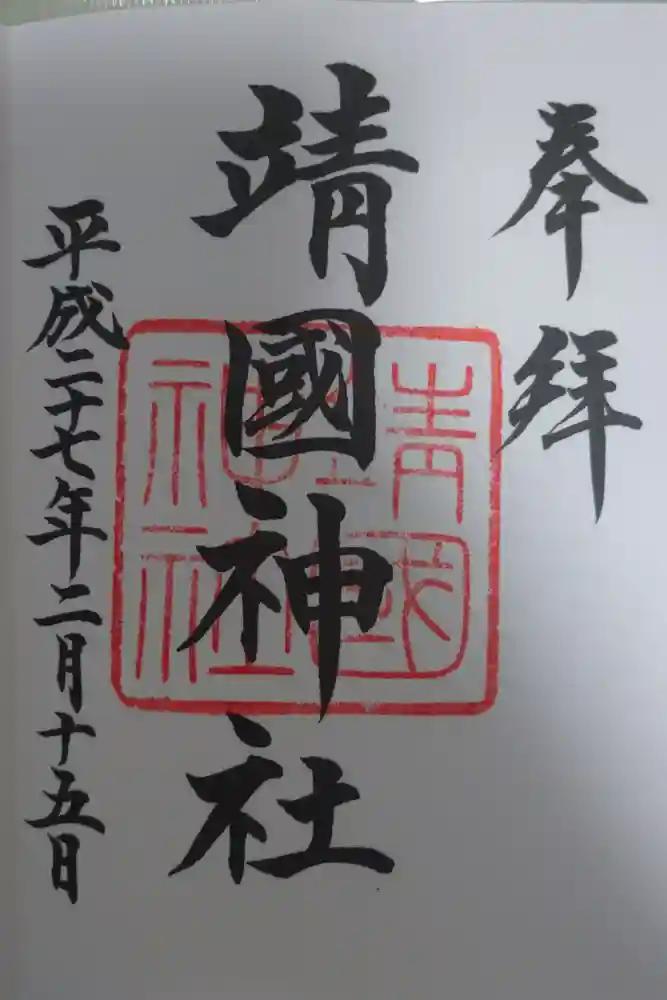 奉拝
靖國神社
靖國神社
平成二十七年二月十五日